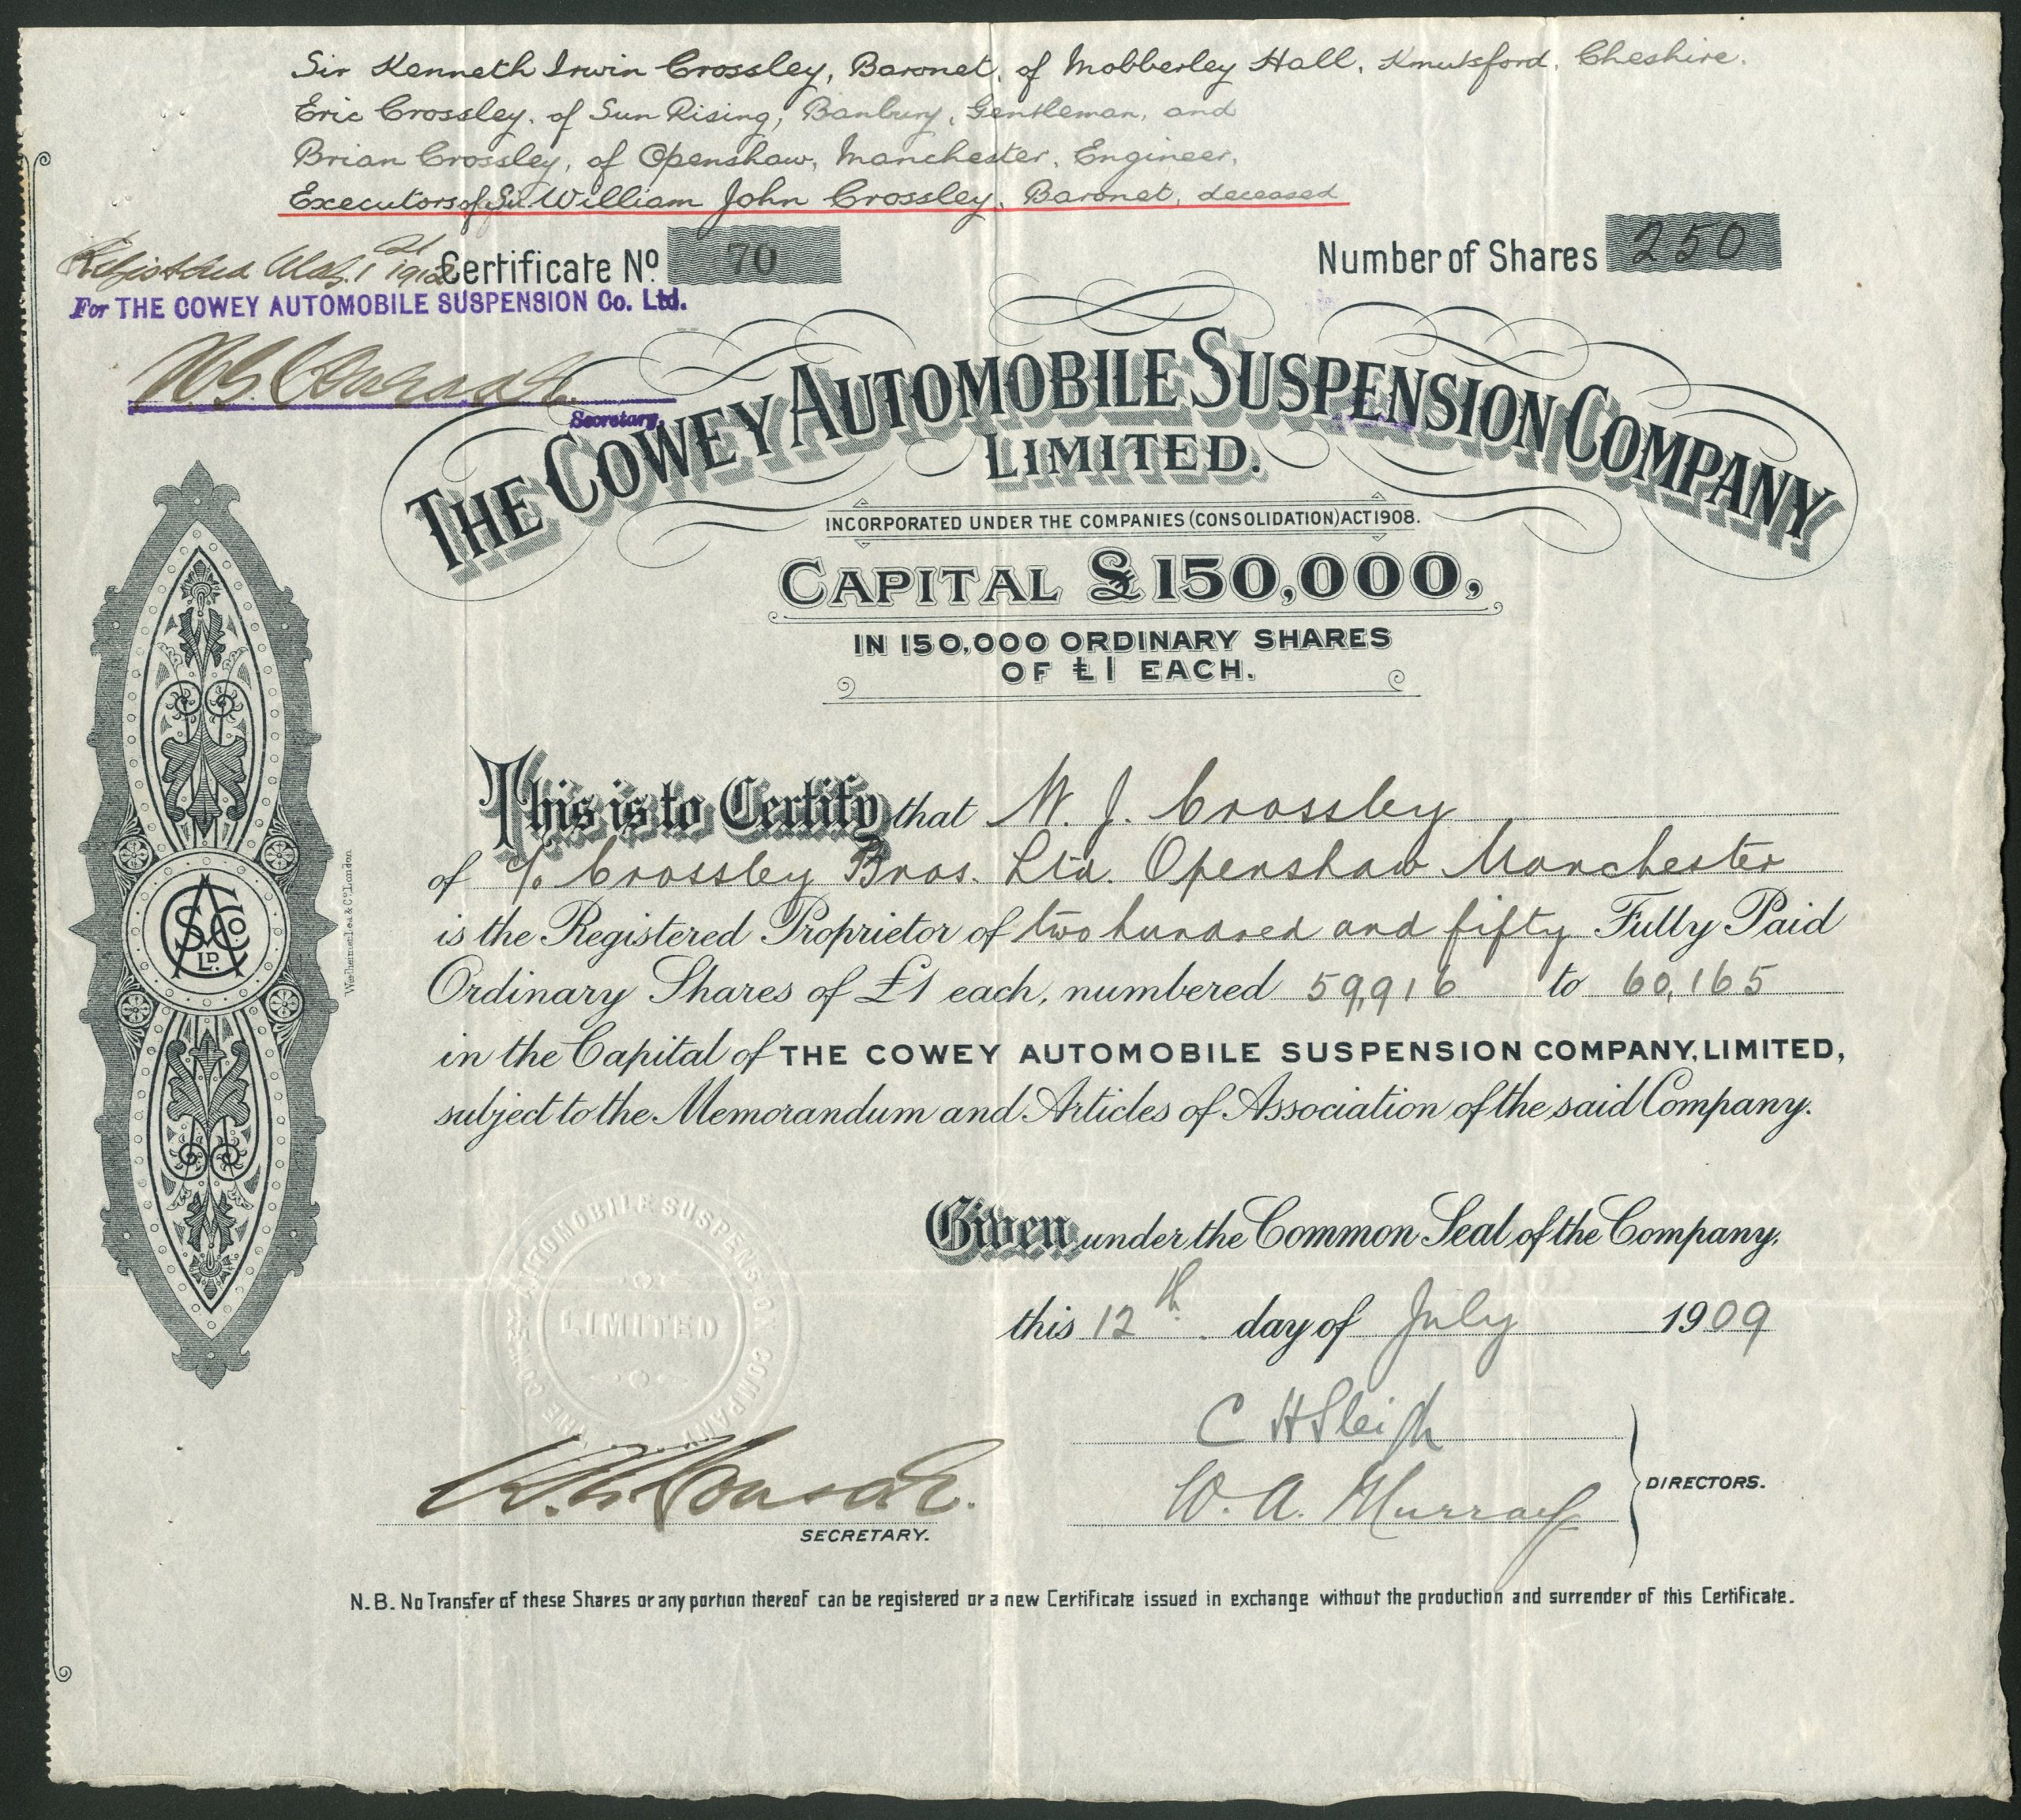 Sir Kenneth Irwin Crossley, Baronet, of Mobberley Hall, Knutsford, Cheshire.
Eric Crossley, of Sun Rising, Banbury, Gentleman, and
Brian Crossley, of Openshaw, Manchester, Engineer,
Executors of Sir William John Crossley, Baronet, deceased
Registered 1st 1912
Certificate No. 70
Number of Shares 250
For THE COWEY AUTOMOBILE SUSPENSION Co. Ltd.
Secretary.
THE COWEY AUTOMOBILE SUSPENSION COMPANY
LIMITED.
INCORPORATED UNDER THE COMPANIES (CONSOLIDATION) ACT 1908.
CAPITAL £150,000,
IN 150,000 ORDINARY SHARES
OF £1 EACH.
This is to Certify that W. J. Crossley
of c/o Crossley Bros. Ltd. Openshaw Manchester
is the Registered Proprietor of two hundred and fifty Fully Paid
Ordinary Shares of £1 each, numbered 59,916 to 60,165
in the Capital of THE COWEY AUTOMOBILE SUSPENSION COMPANY, LIMITED,
subject to the Memorandum and Articles of Association of the said Company.
CAS Co LD.
Given under the Common Seal of the Company,
this 12th day of July 1909
THE COWEY AUTOMOBILE SUSPENSION COMPANY
LIMITED
C H Sleigh
W. A. Murray
DIRECTORS.
SECRETARY.
N.B. No Transfer of these Shares or any portion thereof can be registered or a new Certificate issued in exchange without the production and surrender of this Certificate.